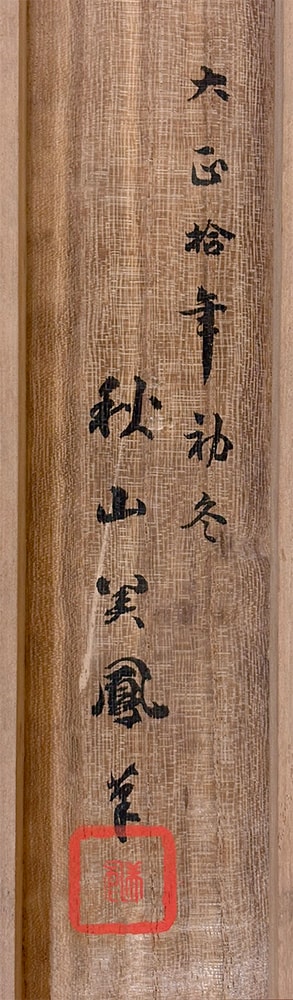 大正拾年初冬
秋山美鳳筆